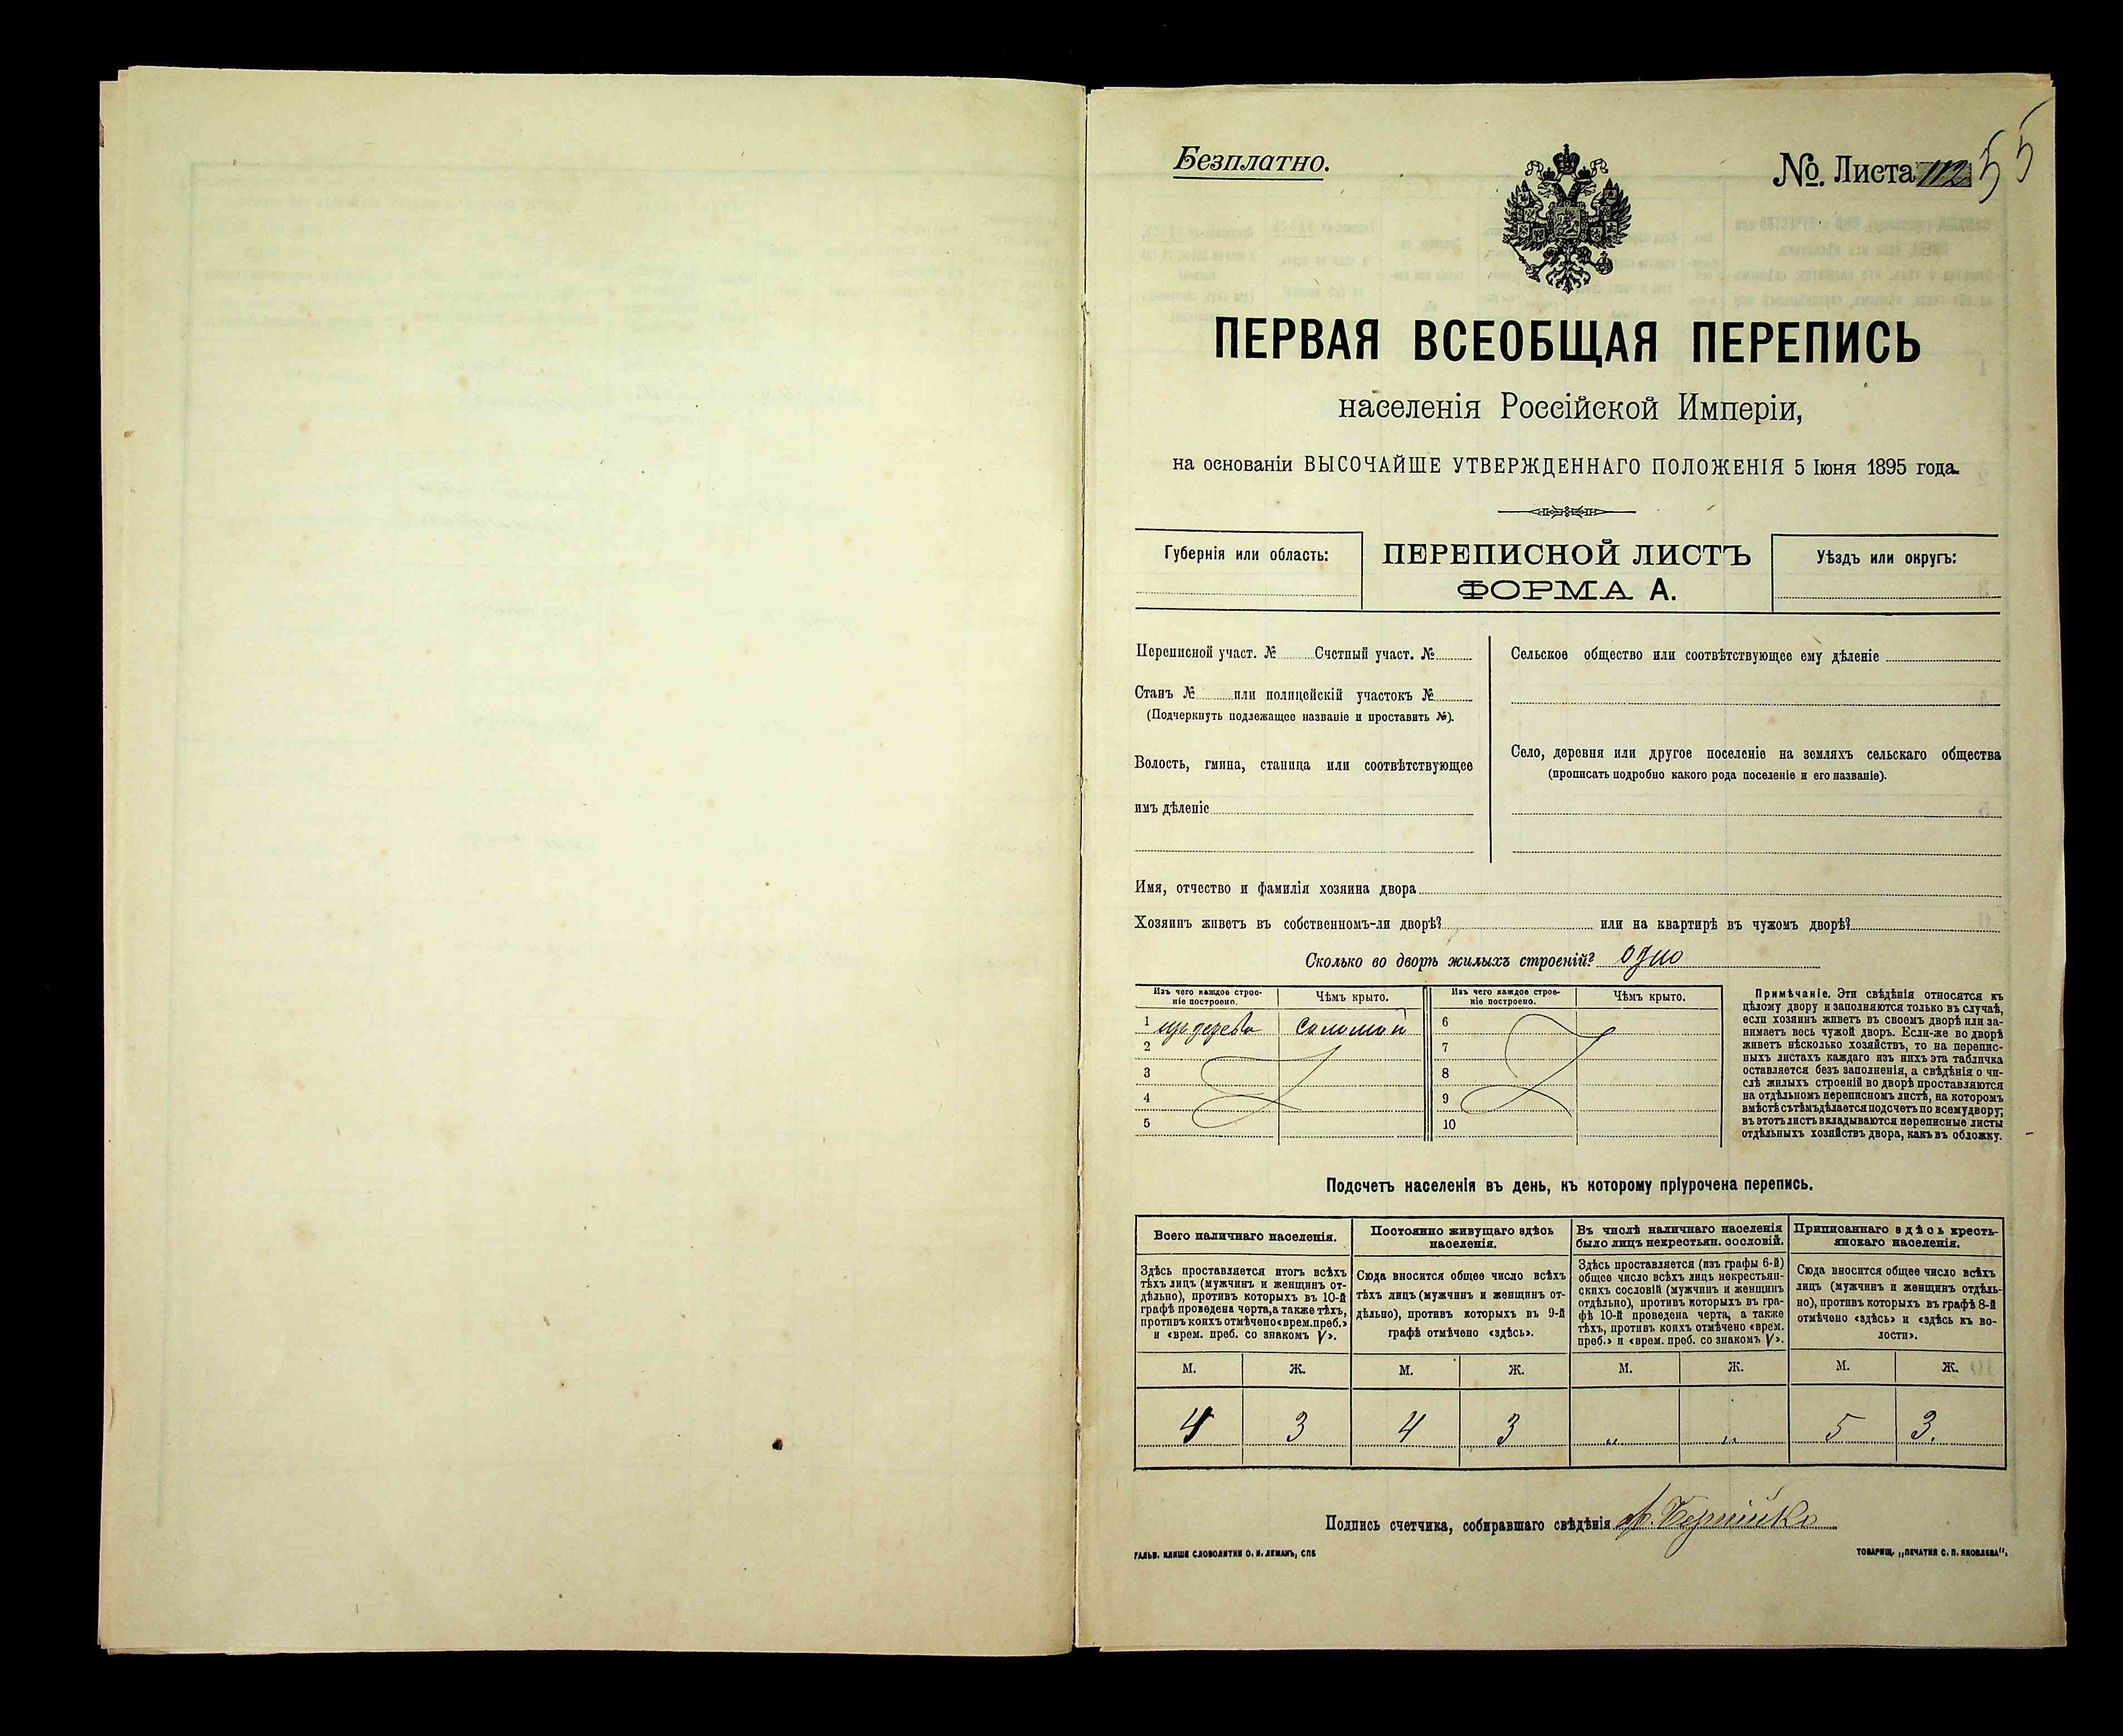 Безплатно.
№. Листа 112 55
ПЕРВАЯ ВСЕОБЩАЯ ПЕРЕПИСЬ
населенія Россійской Имперіи,
на основаніи ВЫСОЧАЙШЕ УТВЕРЖДЕННАГО ПОЛОЖЕНІЯ 5 Іюня 1895 года.
Губернія или область:
ПЕРЕПИСНОЙ ЛИСТЪ
ФОРМА А.
Уѣздъ или округъ:
Переписной участ. № Счетный участ. №
Станъ № или полицейскій участокъ №
(Подчеркнуть подлежащее названіе и проставить №).
Волость, гмина, станица или соотвѣтствующее
имъ дѣленіе
Сельское общество или соотвѣтствующее ему дѣленіе
Село, деревня или другое поселеніе на земляхъ сельскаго общества
(прописать подробно какого рода поселеніе и его названіе).
Имя, отчество и фамилія хозяина двора
Хозяинъ живетъ въ собственномъ-ли дворѣ? или на квартирѣ въ чужомъ дворѣ?
Сколько во дворѣ жилыхъ строеній? одно
Изъ чего каждое строе-
ніе построено.
Чѣмъ крыто.
Изъ чего каждое строе-
ніе построено.
Чѣмъ крыто.
1 изъ дерева соломой 6
2 7
3 8
4 9
5 10
Примѣчаніе. Эти свѣдѣнія относятся къ
цѣлому двору и заполняются только въ случаѣ,
если хозяинъ живетъ въ своемъ дворѣ или за-
нимаетъ весь чужой дворъ. Если-же во дворѣ
живетъ нѣсколько хозяйствъ, то на перепис-
ныхъ листахъ каждаго изъ нихъ эта табличка
оставляется безъ заполненія, а свѣдѣнія о чи-
слѣ жилыхъ строеній во дворѣ проставляются
на отдѣльномъ переписномъ листѣ, на которомъ
вмѣстѣ съ тѣмъ дѣлается подсчетъ по всему двору;
въ этотъ листъ вкладываются переписные листы
отдѣльныхъ хозяйствъ двора, какъ въ обложку.
Подсчетъ населенія въ день, къ которому пріурочена перепись.
Всего наличнаго населенія.
Здѣсь проставляется итогъ всѣхъ
тѣхъ лицъ (мужчинъ и женщинъ от-
дѣльно), противъ которыхъ въ 10-й
графѣ проведена черта, а также тѣхъ,
противъ коихъ отмѣчено «врем. преб.»
и «врем. преб. со знакомъ V».
Постоянно живущаго здѣсь
населенія.
Сюда вносится общее число всѣхъ
тѣхъ лицъ (мужчинъ и женщинъ от-
дѣльно), противъ которыхъ въ 9-й
графѣ отмѣчено «здѣсь».
Въ числѣ наличнаго населенія
было лицъ некрестьян. сословій.
Здѣсь проставляется (изъ графы 6-й)
общее число всѣхъ лицъ некрестьян-
скихъ сословій (мужчинъ и женщинъ
отдѣльно), противъ которыхъ въ гра-
фѣ 10-й проведена черта, а также
тѣхъ, противъ коихъ отмѣчено «врем.
преб.» и «врем. преб. со знакомъ V».
Приписаннаго здѣсь кресть-
янскаго населенія.
Сюда вносится общее число всѣхъ
лицъ (мужчинъ и женщинъ отдѣль-
но), противъ которыхъ въ графѣ 8-й
отмѣчено «здѣсь» и «здѣсь къ во-
лости».
М. Ж. М. Ж. М. Ж. М. Ж.
4 3 4 3 „ „ 5 3.
Подпись счетчика, собиравшаго свѣдѣнія
ГАЛЬВ. КЛИШЕ СЛОВОЛИТНИ О. И. ЛЕМАНЪ, СПБ
ТОВАРИЩ. „ПЕЧАТНЯ С. П. ЯКОВЛЕВА“.